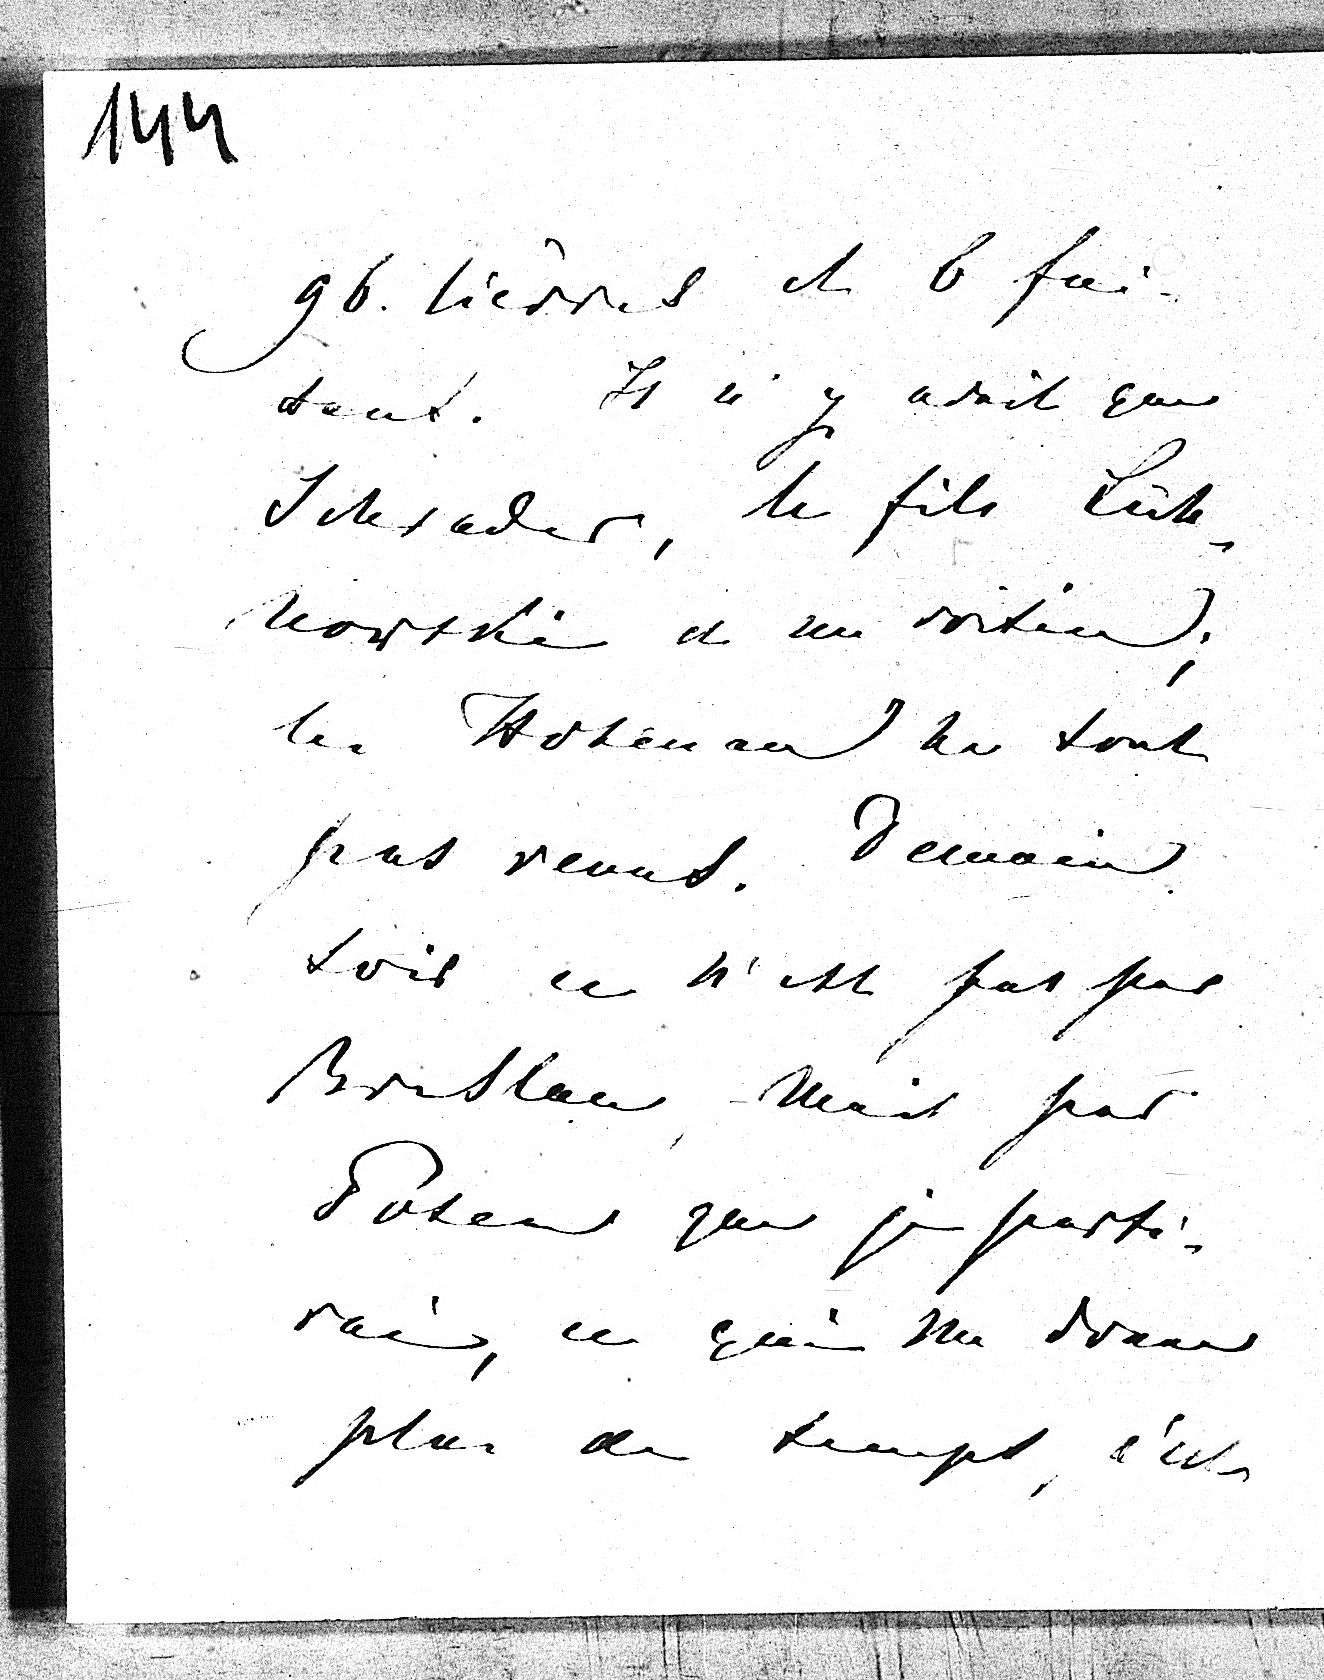 144
96. lièvres et 6 fai-
sans. Il n'y avait que
Schrader, le fils Lich-
nowski et un voisin,
les Hohenau ne sont
pas venus. Demain
soir ce n'est pas par
Breslau, mais par
Posen que je parti-
rai, ce qui me donne
plus de temps, c'est